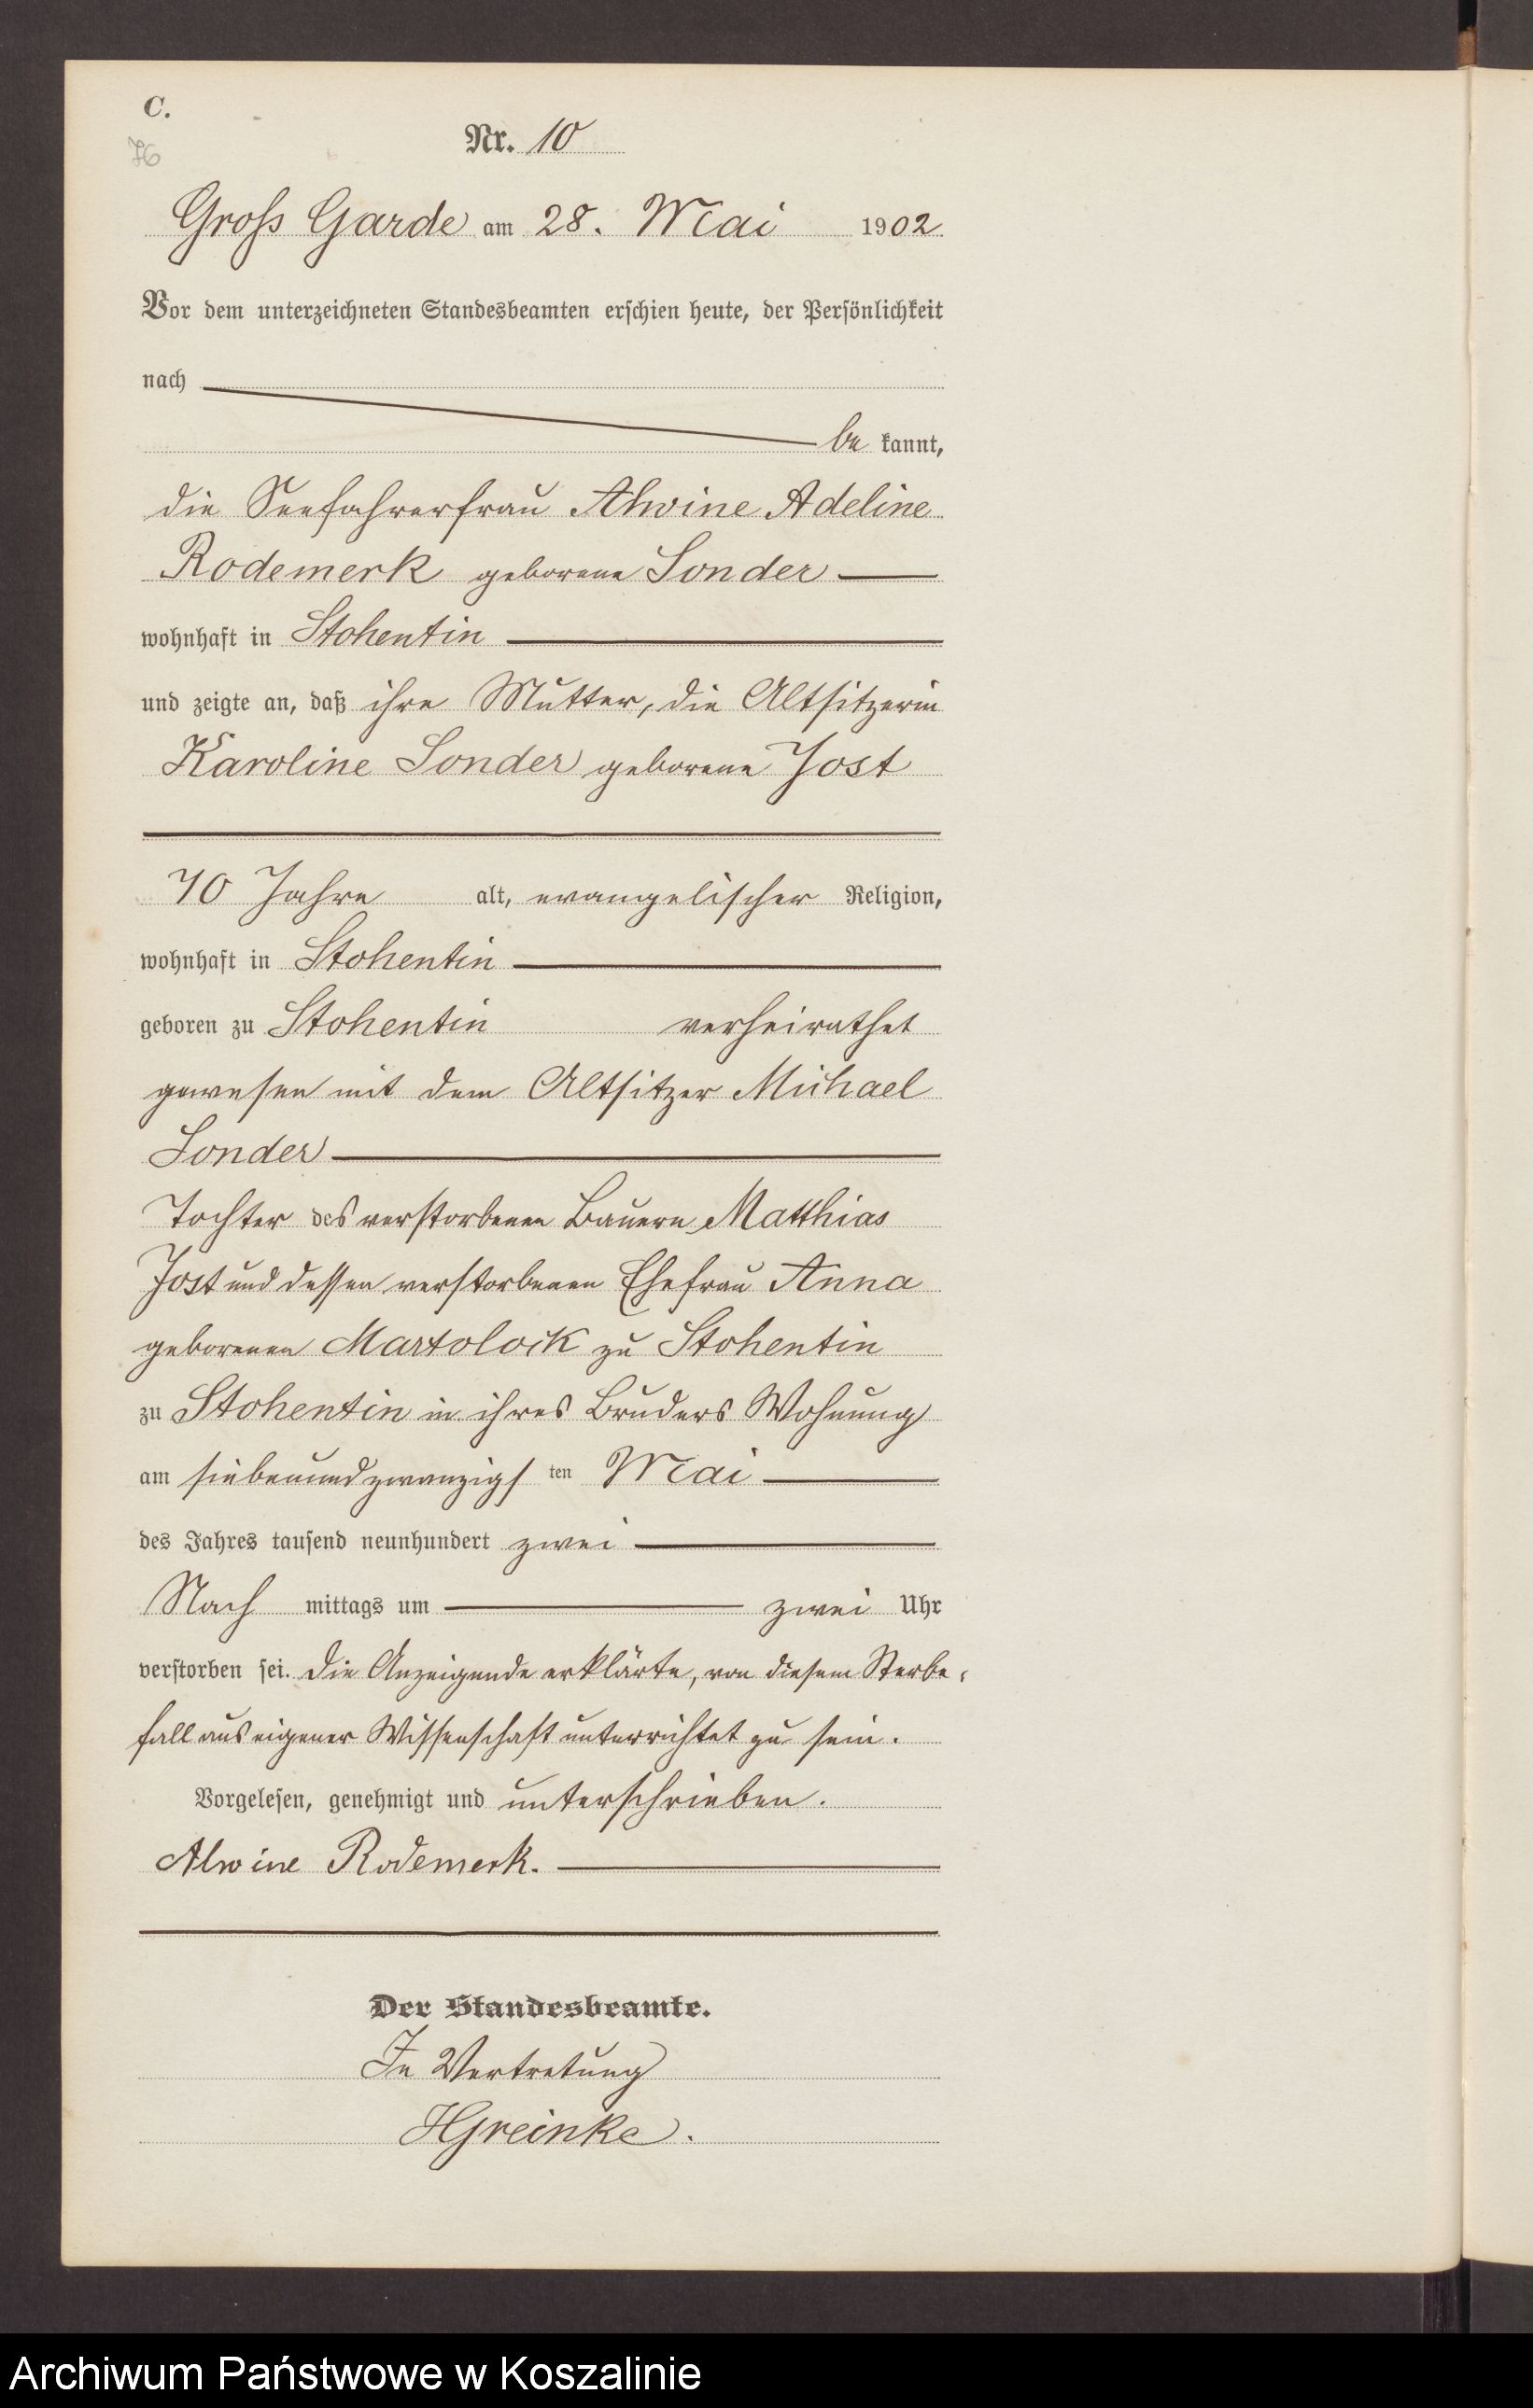 C.
Nr. 10
76
Gross Garde am 28. Mai 1902
Vor dem unterzeichneten Standesbeamten erschien heute, der Persönlichkeit
nach
be kannt,
die Seefahrerfrau Alwine Adeline
Rodemerk geborene Sonder
wohnhaft in Stohentin
und zeigte an, daß ihre Mutter, die Altsitzerin
Karoline Sonder geborene Jost
70 Jahre alt, evangelischer Religion,
wohnhaft in Stohentin
geboren zu Stohentin verheirathet
gewesen mit dem Altsitzer Michael
Sonder
Tochter des verstorbenen Bauern Matthias
Jost und dessen verstorbenen Ehefrau Anna
geborenen Martolock zu Stohentin
zu Stohentin in ihres Bruders Wohnung
am siebenundzwanzigs ten Mai
des Jahres tausend neunhundert zwei
Nach mittags um zwei Uhr
verstorben sei. Die Anzeigende erklärte, von diesem Sterbe-
fall aus eigener Wissenschaft unterrichtet zu sein.
Vorgelesen, genehmigt und unterschrieben.
Alwine Rodemerk.
Der Standesbeamte.
In Vertretung
HGreinke.
Archiwum Państwowe w Koszalinie